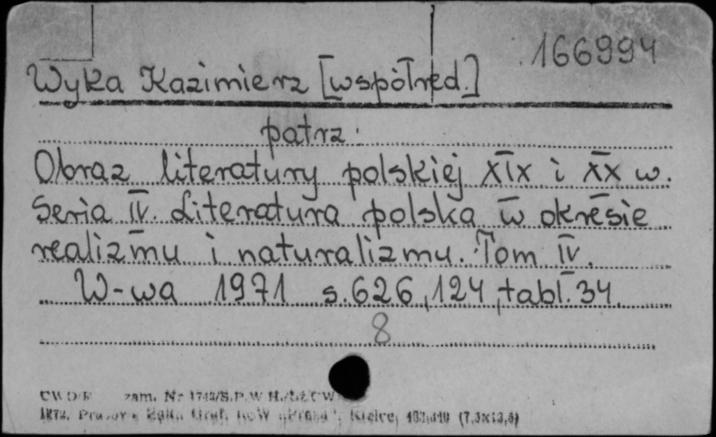 166994
Wyka Kazimierz [współred.]
patrz:
Obraz literatury polskiej XIX i XX w.
Seria IV. Literatura polska w okresie
realizmu i naturalizmu. Tom IV.
W-wa 1971 s. 626, 124, tabl. 34.
8
CWD/R zam. Nr
(7,5x12,5)